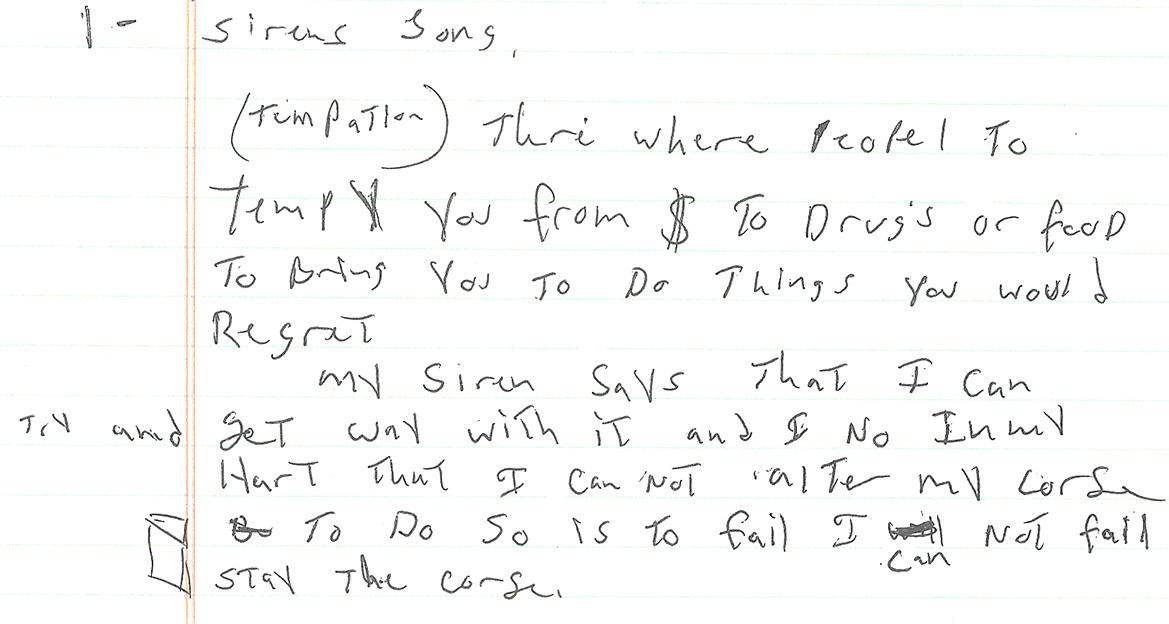 1- Sirens Song,
(tempation) Thri where Peopel To
Temp You from $ To Drug's or food
To Bring You To Do Things you would
Regrat
my Siren Says That I Can
Try and get way with it and I No In my
Hart That I Can Not alter my corse
To Do So is to fail I can Not fail
Stay The corse.